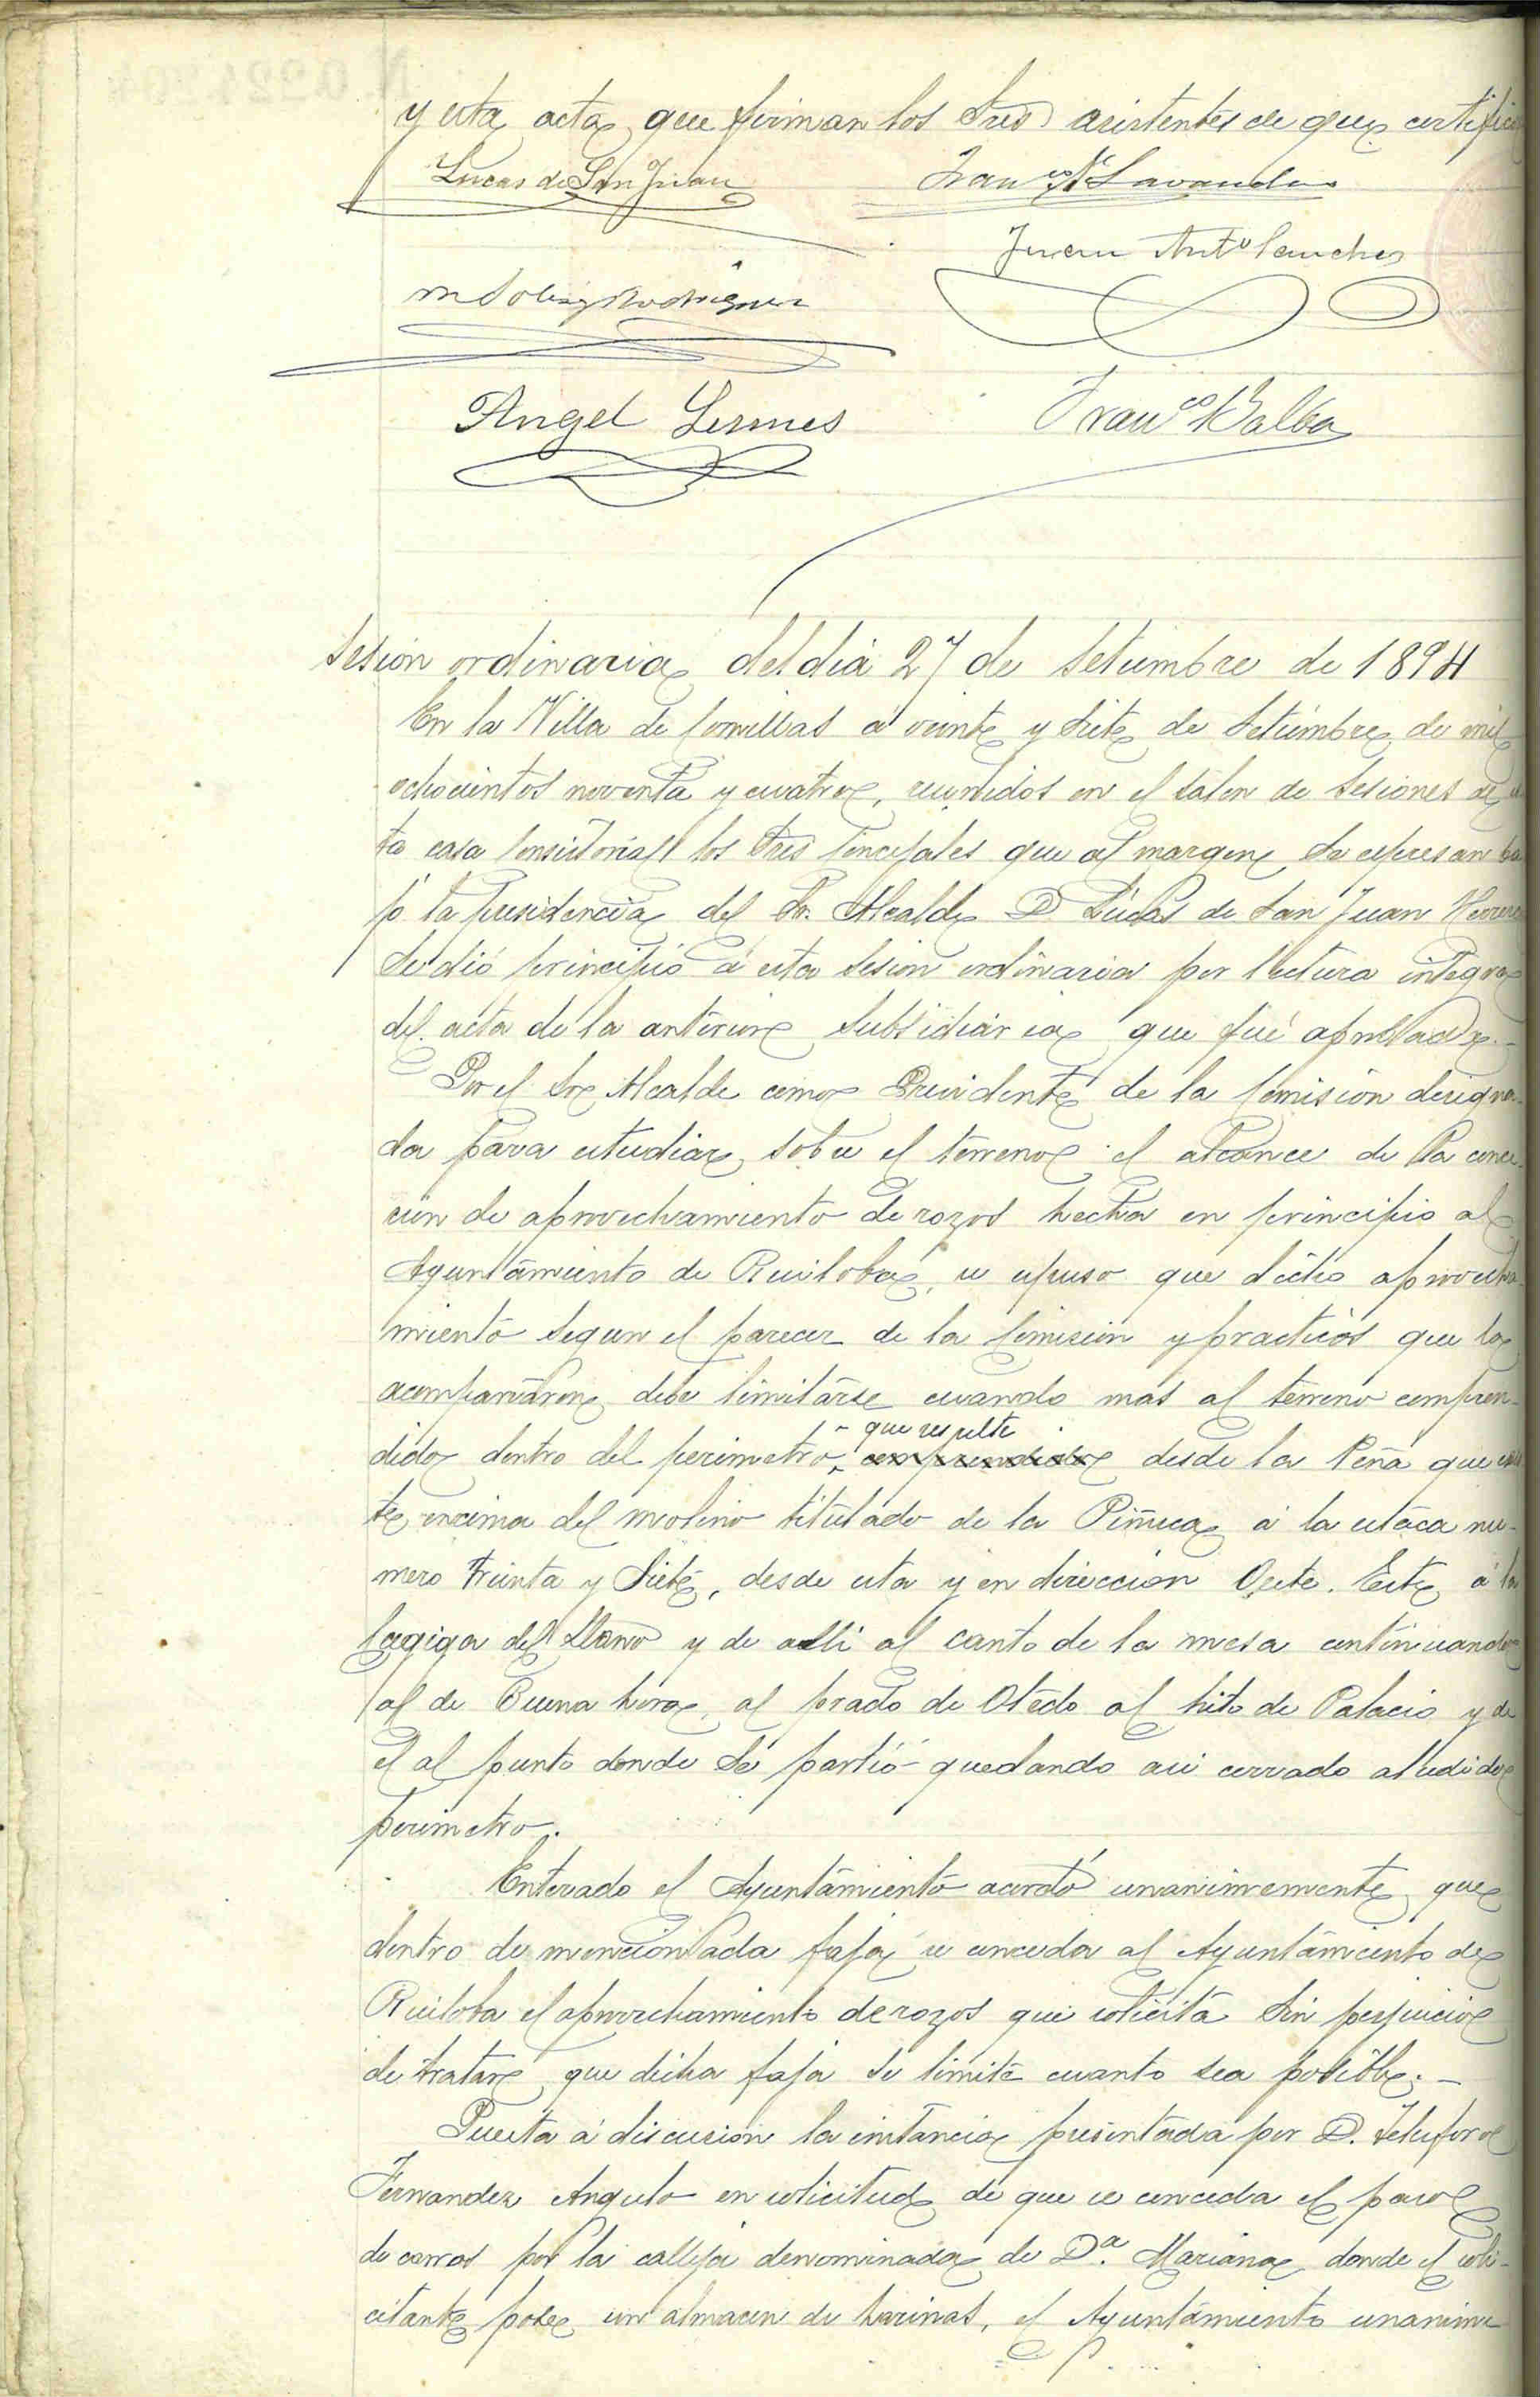 y esta acta que firman los Sres asistentes de que certifico
Lucas de San Juan
Franco Lavandero
Juan Anto Sanchez
Rodriguez
Angel Lermes
Franco Balba
Sesion ordinaria del dia 27 de Setiembre de 1894
En la Villa de Comillas á veinte y siete de Setiembre de mil
ochocientos noventa y cuatro, reunidos en el salon de Sesiones de es
ta casa Consistorial los Sres Concejales que al margen se espresan ba
jo la presidencia del Sr. Alcalde D Lúcas de San Juan Herrera
se dió principio á esta sesion ordinaria por lectura integra
del acta de la anterior subsidiaria que fué aprobada.-
Por el Sor Alcalde como Presidente de la Comision designa-
da para estudiar sobre el terreno el alcance de la conce-
sion de aprovechamiento de rozos hecha en principio al
Ayuntamiento de Ruiloba, se espuso que dicho aprovecha-
miento segun el parecer de la Comision y practicos que la
acompañaron debe limitarse cuando mas al terreno compren-
dido dentro del perimetro que resulte comprendido desde la Peña que exis
te encima del molino titulado de la Piñuca á la estaca nu-
mero treinta y siete, desde esta y en direccion Oeste. Este á la
Cagiga del Llano y de alli al canto de la mesa continuando
al de Buena hora, al prado de Otedo al hito de Palacio y de
el al punto donde se partió quedando asi cerrado aludido
perimetro.
Enterado el Ayuntamiento acordó unanimemente que
dentro de mencionada faja se conceda al Ayuntamiento de
Ruiloba el aprovechamiento de rozos que solicita sin perjuicio
de tratar que dicha faja se limite cuanto sea posible.-
Puesta á discusion la instancia presentada por D. Telesforo
Fernandez Angulo en solicitud de que se conceda el paso
de carros por la calleja denominada de Da. Mariana donde el soli-
citante posee un almacen de harinas, el Ayuntamiento unanime